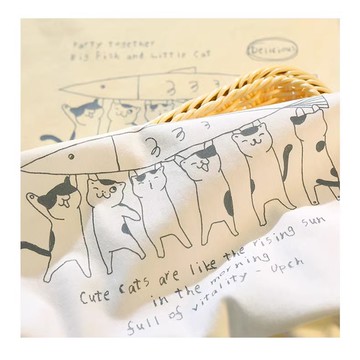 Party together
Big Fish and Little Cat
Delicious
Cute cats are like the rising sun
in the morning
full of vitality - Upch